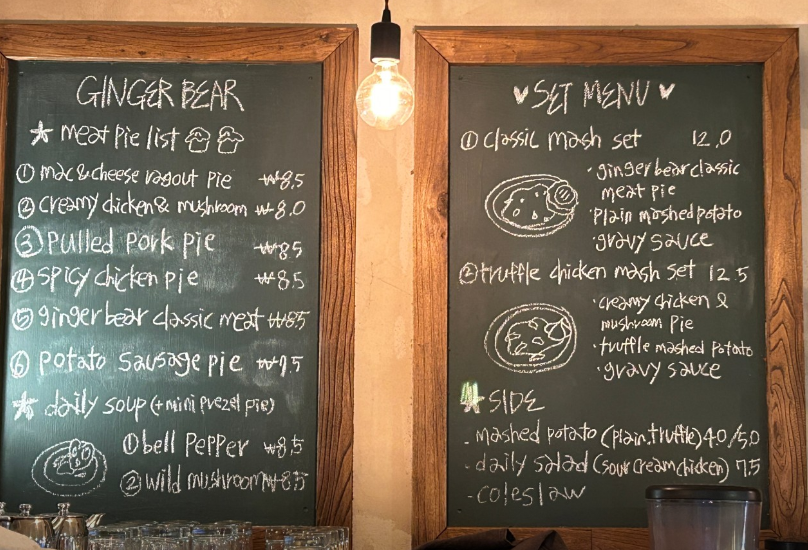 GINGER BEAR
meat pie list
① mac & cheese ragout pie ₩8.5
② creamy chicken & mushroom ₩8.0
③ pulled pork pie ₩8.5
④ spicy chicken pie ₩8.5
⑤ ginger bear classic meat ₩8.5
⑥ potato sausage pie ₩7.5
daily soup (+mini prezel pie)
① bell pepper ₩8.5
② wild mushroom ₩8.5
♥ SET MENU ♥
① classic mash set 12.0
· ginger bear classic
meat pie
· plain mashed potato
· gravy sauce
② truffle chicken mash set 12.5
· creamy chicken &
mushroom pie
· truffle mashed potato
· gravy sauce
SIDE
- mashed potato (plain.truffle) 4.0/5.0
- daily salad (sour cream chicken) 7.5
- coleslaw